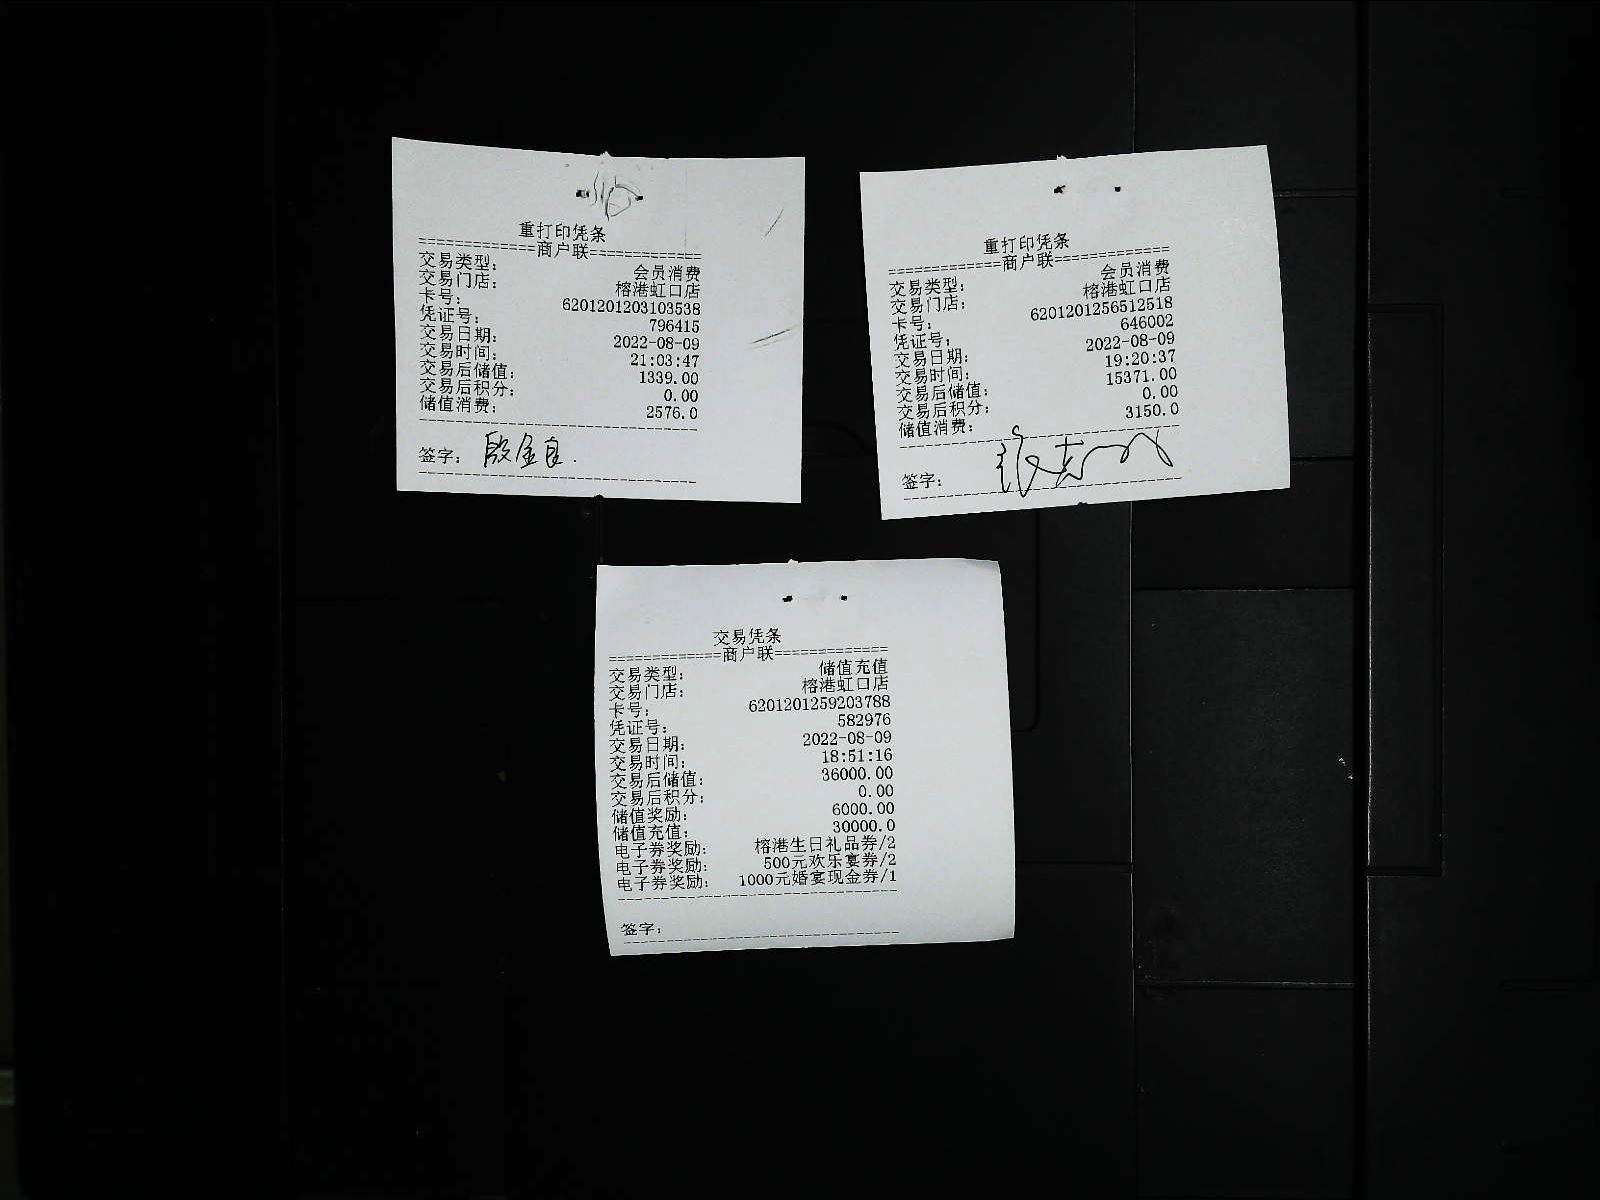 重打印凭条
=============商户联=============
交易类型: 会员消费
交易门店: 榕港虹口店
卡号: 6201201203103538
凭证号: 796415
交易日期: 2022-08-09
交易时间: 21:03:47
交易后储值: 1339.00
交易后积分: 0.00
储值消费: 2576.0
签字: 殷金良.
重打印凭条
=============商户联=============
交易类型: 会员消费
交易门店: 榕港虹口店
卡号: 6201201256512518
凭证号: 646002
交易日期: 2022-08-09
交易时间: 19:20:37
交易后储值: 15371.00
交易后积分: 0.00
储值消费: 3150.0
签字:
交易凭条
=============商户联=============
交易类型: 储值充值
交易门店: 榕港虹口店
卡号: 6201201259203788
凭证号: 582976
交易日期: 2022-08-09
交易时间: 18:51:16
交易后储值: 36000.00
交易后积分: 0.00
储值奖励: 6000.00
储值充值: 30000.0
电子券奖励: 榕港生日礼品券/2
电子券奖励: 500元欢乐宴券/2
电子券奖励: 1000元婚宴现金券/1
签字: